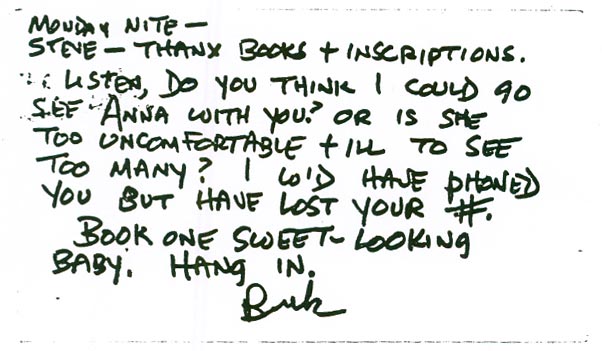 MONDAY NITE —
STEVE — THANX BOOKS + INSCRIPTIONS.
LISTEN, DO YOU THINK I COULD GO
SEE ANNA WITH YOU? OR IS SHE
TOO UNCOMFORTABLE + ILL TO SEE
TOO MANY? I WD HAVE PHONED
YOU BUT HAVE LOST YOUR #.
BOOK ONE SWEET-LOOKING
BABY. HANG IN.
Buk